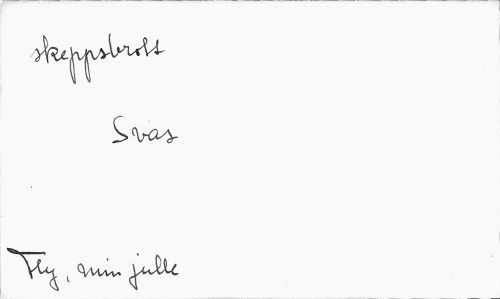 skeppsbrott
Svas
Fly, min julle